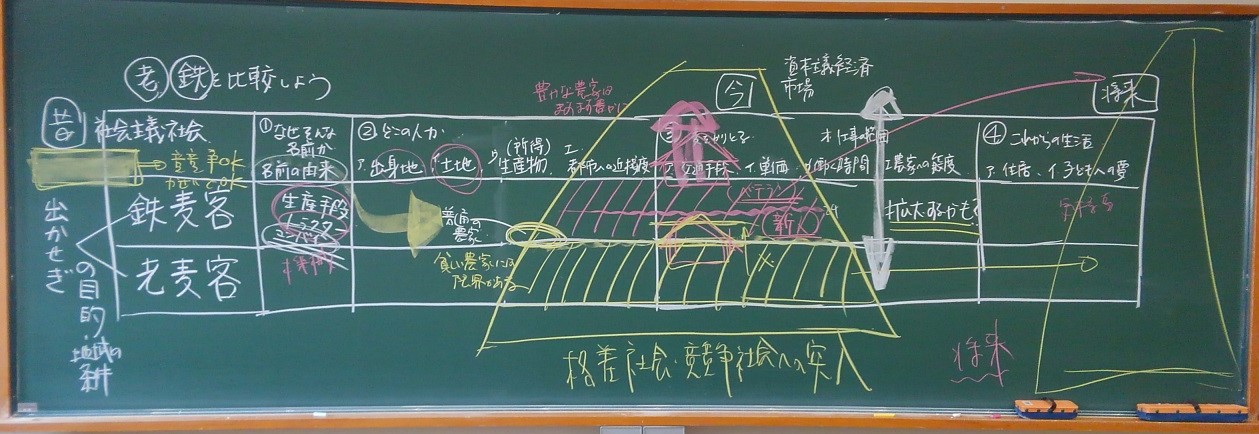 老 鉄を比較しよう
昔
社会主義社会
競争OK
鉄麦客
老麦客
出かせぎ
の目的・
地域の
条件
①なぜそんな
名前か
名前の由来
生産手段
トラクター
コンバイン
②どこの人か
ア.出身地
イ土地
ウ(所得)
生産物
エ.
都市への近接度
普通の
農家
貧しい農家には
限界がある
豊かな農家は
ますます豊かに
今
資本主義経済
市場
③
ア.交通手段
イ.単価
ウ働く時間
エ農家の態度
オ.仕事の範囲
ベテラン
新人
拡大するかも?
将来
④これからの生活
ア.住居、イ.子どもへの夢
格差社会・競争社会への突入
将来